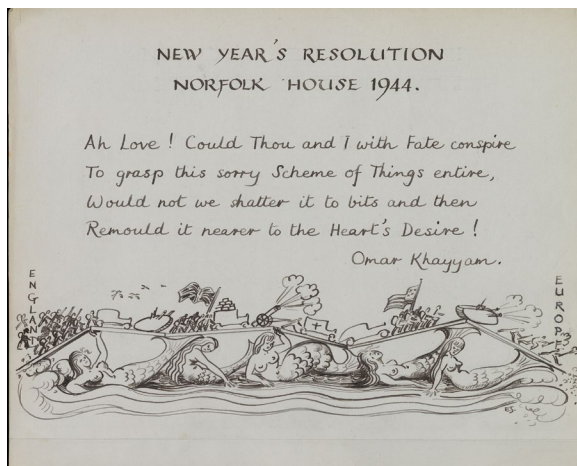 NEW YEAR'S RESOLUTION
NORFOLK HOUSE 1944.
Ah Love! Could Thou and I with Fate conspire
To grasp this sorry Scheme of Things entire,
Would not we shatter it to bits and then
Remould it nearer to the Heart's Desire!
Omar Khayyam.
ENGLAND
EUROPE